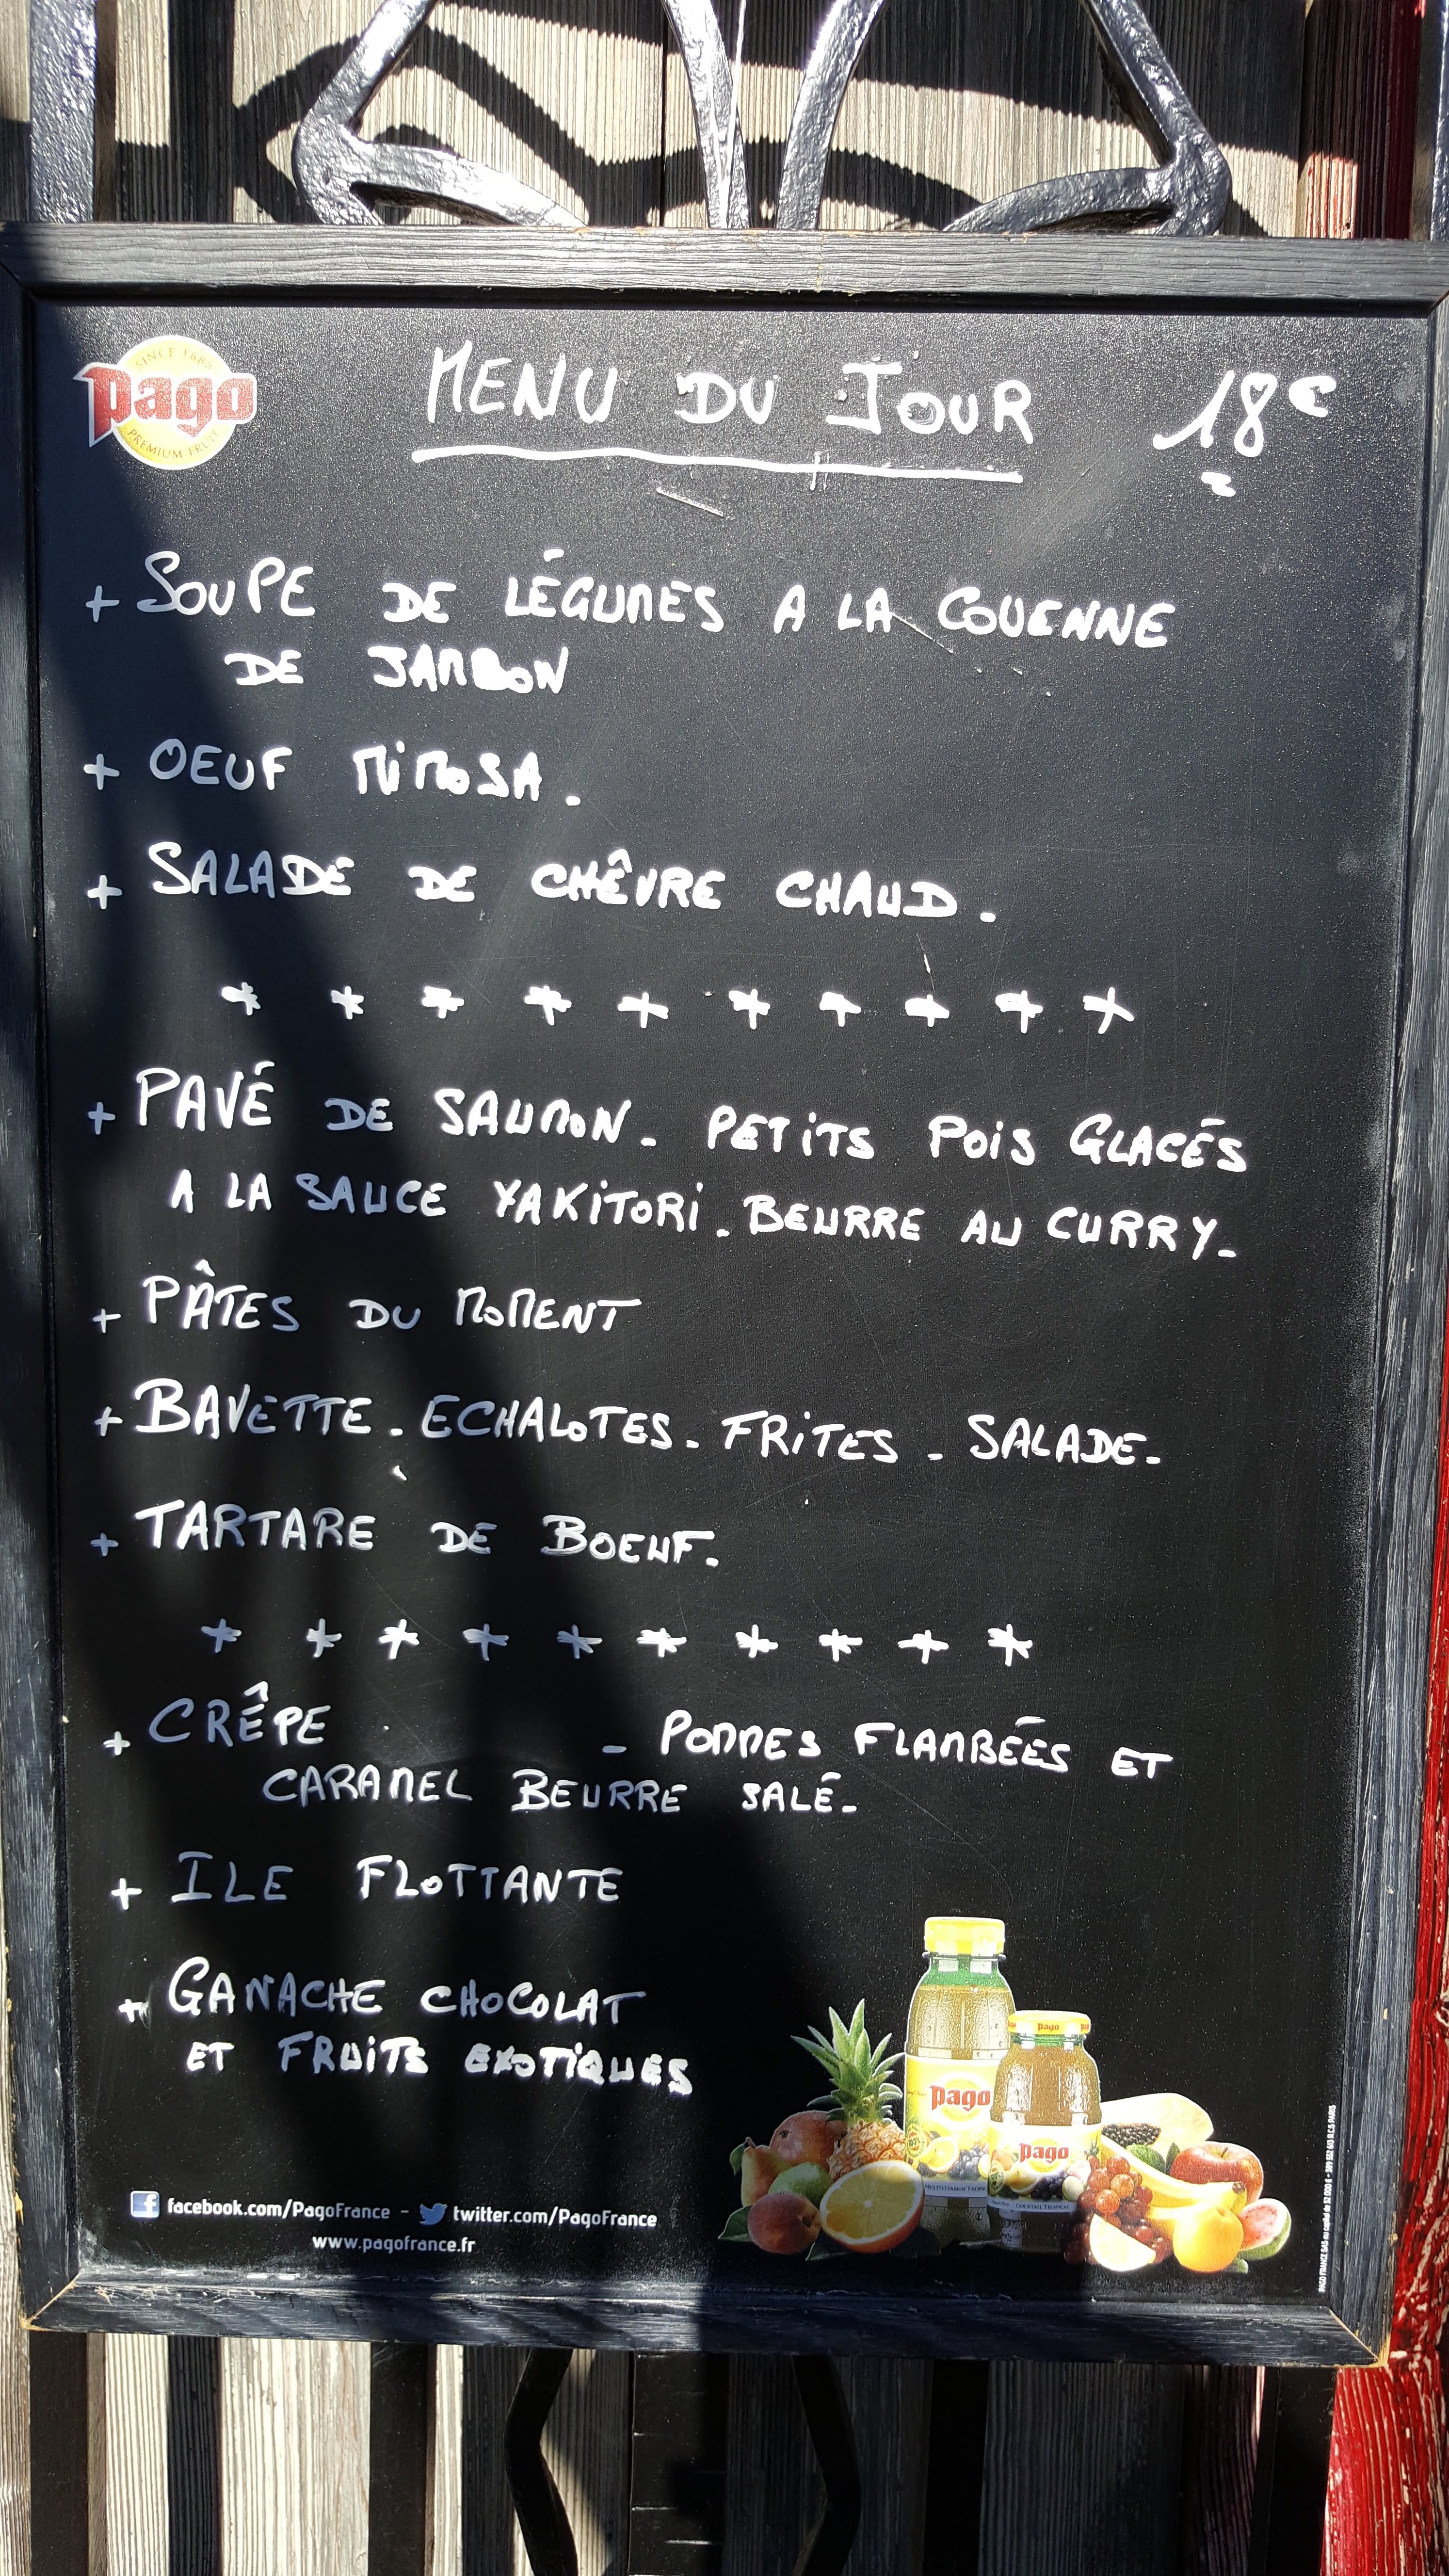 SINCE 1888
pago
PREMIUM FRUIT
MENU DU JOUR 18€
+ SOUPE DE LÉGUMES A LA COUENNE
DE JAMBON
+ OEUF MiMOSA.
+ SALADE DE CHÊVRE CHAUD.
* * * * * * * * * *
+ PAVÉ DE SAUMON. PETITS POIS GLACÉS
A LA SAUCE YAKITORI. BEURRE AU CURRY.
+ PÂTES DU MOMENT
+ BAVETTE. ECHALOTES. FRITES. SALADE.
+ TARTARE DE BOEUF.
* * * * * * * * * *
+ CRÊPE - POMMES FLAMBÉES ET
CARAMEL BEURRE SALÉ.
+ ILE FLOTTANTE
+ GANACHE CHOCOLAT
ET FRUITS EXOTIQUES
pago
pago
pago
COCKTAIL TROPICAL
facebook.com/PagoFrance - twitter.com/PagoFrance
www.pagofrance.fr